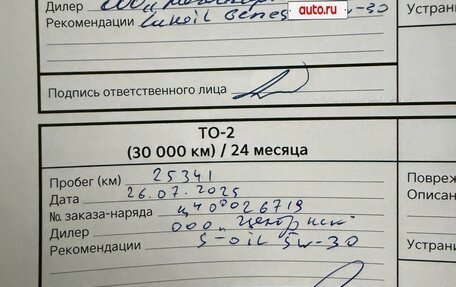 Дилер ООО
Рекомендации Lukoil Genes w-30
auto.ru
Устрани
Подпись ответственного лица
ТО-2
(30 000 км) / 24 месяца
Пробег (км) 25341
Дата 26.07.2025
№ заказа-наряда ц400026719
Дилер ООО „Центр
Рекомендации S-oil 5w-30
Повреж
Описан
Устрани